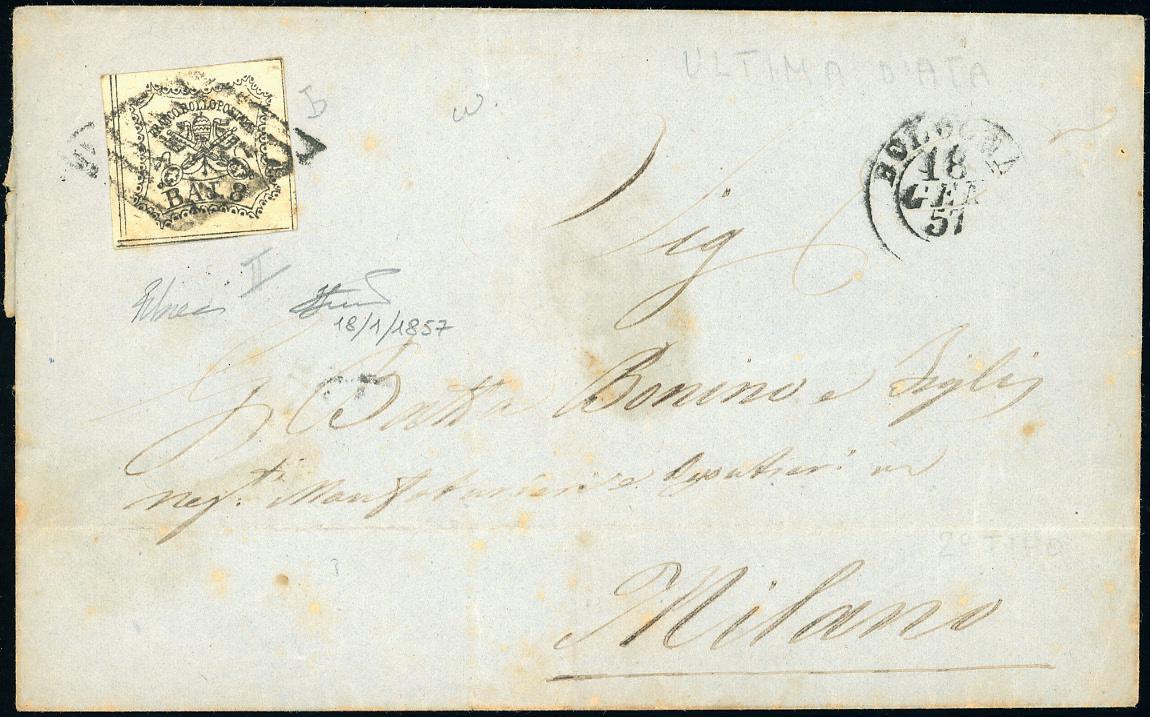 ULTIMA DATA
FRANCO BOLLO POSTALE
BAI. 8
BOLOGNA
18
GEN
57
b
w.
II
18/1/1857
Sig
G Batta Bonino e Figli
neg.ti
Milano
2° TIPO